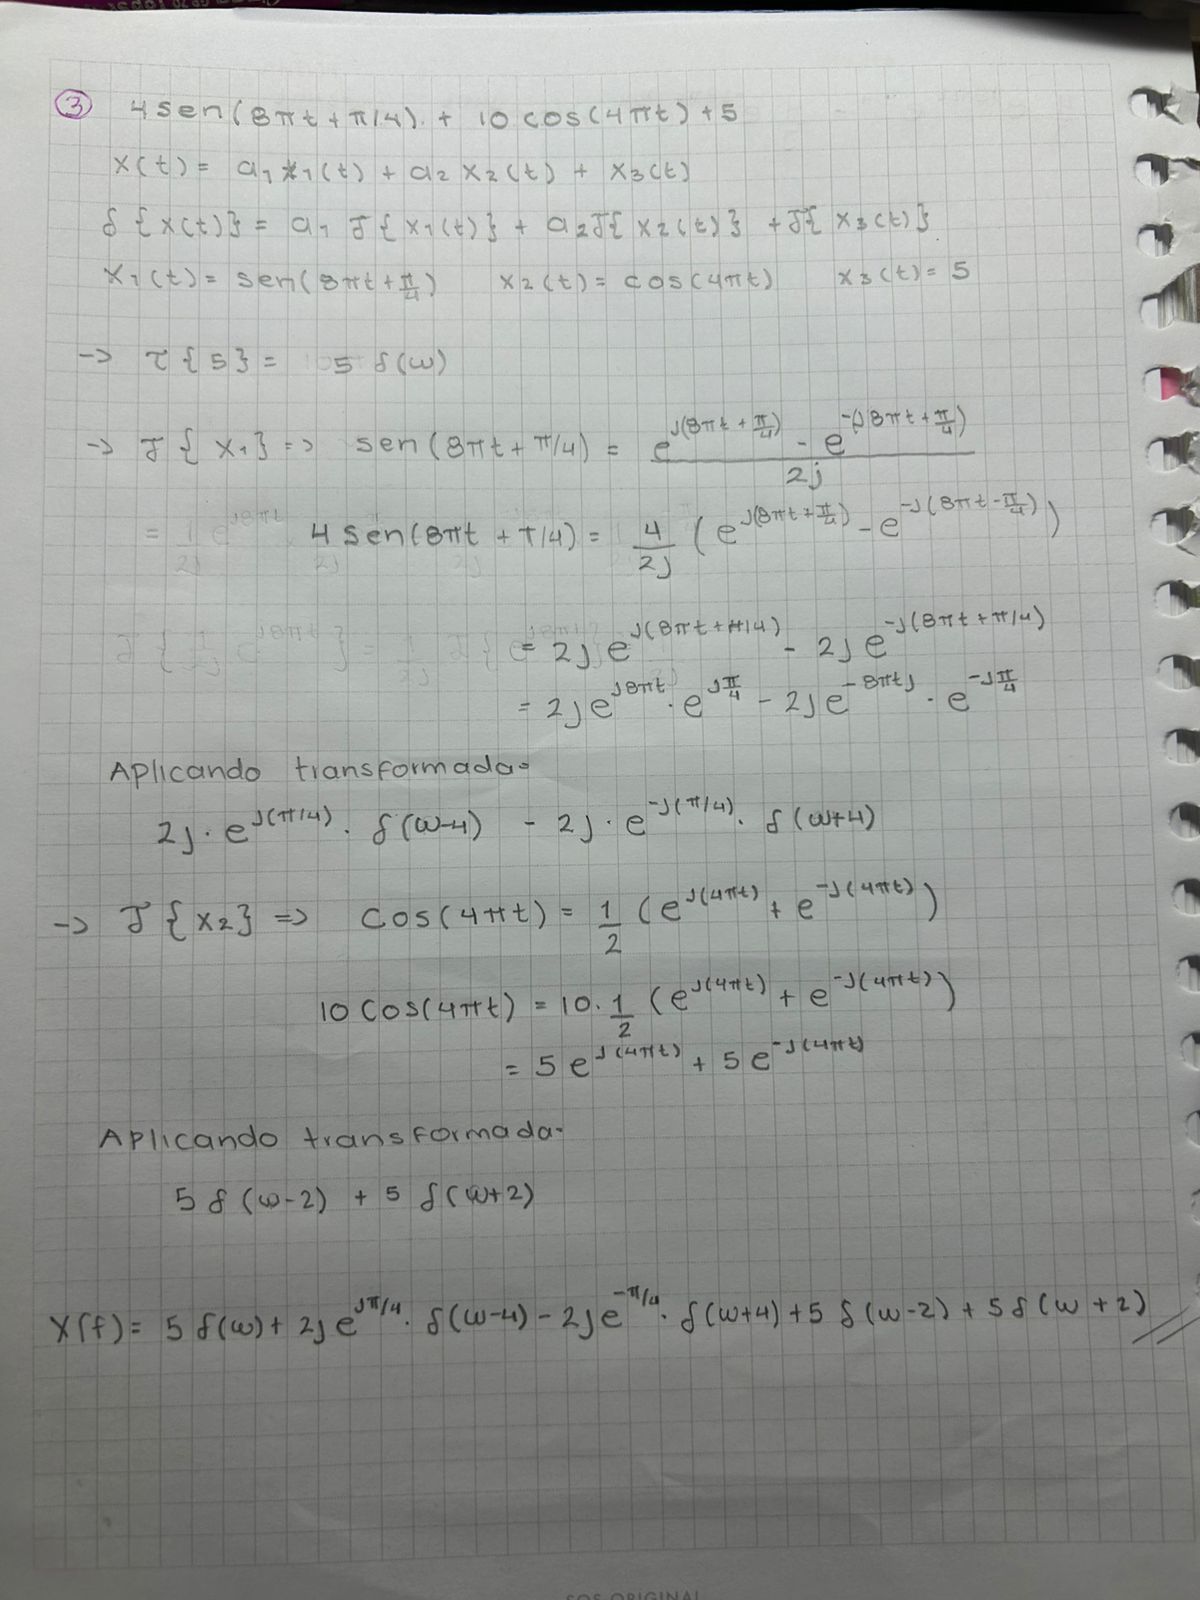 ③ 4 sen(8πt + π/4) + 10 cos(4πt) + 5
x(t) = a₁ x₁(t) + a₂ x₂(t) + x₃(t)
δ{x(t)} = a₁ F{x₁(t)} + a₂ F{x₂(t)} + F{x₃(t)}
x₁(t) = sen(8πt + π/4) x₂(t) = cos(4πt) x₃(t) = 5
-> τ{5} = 5 δ(ω)
-> F{x₁} => sen(8πt + π/4) = (e^(j(8πt + π/4)) - e^(-(j8πt + π/4))) / 2j
4 sen(8πt + π/4) = 4/2j (e^(j(8πt + π/4)) - e^(-j(8πt - π/4)))
= 2j e^(j(8πt + π/4)) - 2j e^(-j(8πt + π/4))
= 2j e^(j8πt) · e^(jπ/4) - 2j e^(-8πtj) · e^(-jπ/4)
Aplicando transformada-
2j · e^(j(π/4)) · δ(ω-4) - 2j · e^(-j(π/4)) · δ(ω+4)
-> F{x₂} => cos(4πt) = 1/2 (e^(j(4πt)) + e^(-j(4πt)))
10 cos(4πt) = 10 · 1/2 (e^(j(4πt)) + e^(-j(4πt)))
= 5 e^(j(4πt)) + 5 e^(-j(4πt))
Aplicando transformada-
5 δ(ω-2) + 5 δ(ω+2)
X(f) = 5 δ(ω) + 2j e^(jπ/4) · δ(ω-4) - 2j e^(-π/4) · δ(ω+4) + 5 δ(ω-2) + 5 δ(ω+2)